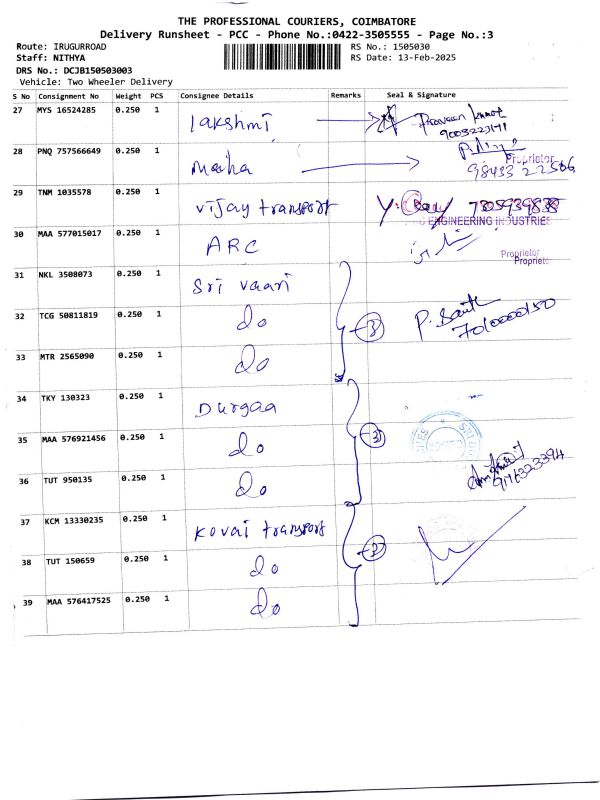 THE PROFESSIONAL COURIERS, COIMBATORE
Delivery Runsheet - PCC - Phone No.:0422-3505555 - Page No.:3
Route: IRUGURROAD RS No.: 1505030
Staff: NITHYA RS Date: 13-Feb-2025
DRS No.: DCJB150503003
Vehicle: Two Wheeler Delivery
S No Consignment No Weight PCS Consignee Details Remarks Seal & Signature
27 MYS 16524285 0.250 1 lakshmi Praveen Kumar
9003223171
28 PNQ 757566649 0.250 1 Maha Proprietor
98433 22566
29 TNM 1035578 0.250 1 vijay transport 7305939835
ENGINEERING INDUSTRIES
30 MAA 577015017 0.250 1 ARC
Proprietor
Proprietor
31 NKL 3508073 0.250 1 Sri vaari
32 TCG 50811819 0.250 1 do 3 P.
7010000150
33 MTR 2565090 0.250 1 do
34 TKY 130323 0.250 1 Durgaa
35 MAA 576921456 0.250 1 do 3
36 TUT 950135 0.250 1 do
9176323394
37 KCM 13330235 0.250 1 Kovai transport
38 TUT 150659 0.250 1 do
39 MAA 576417525 0.250 1 do